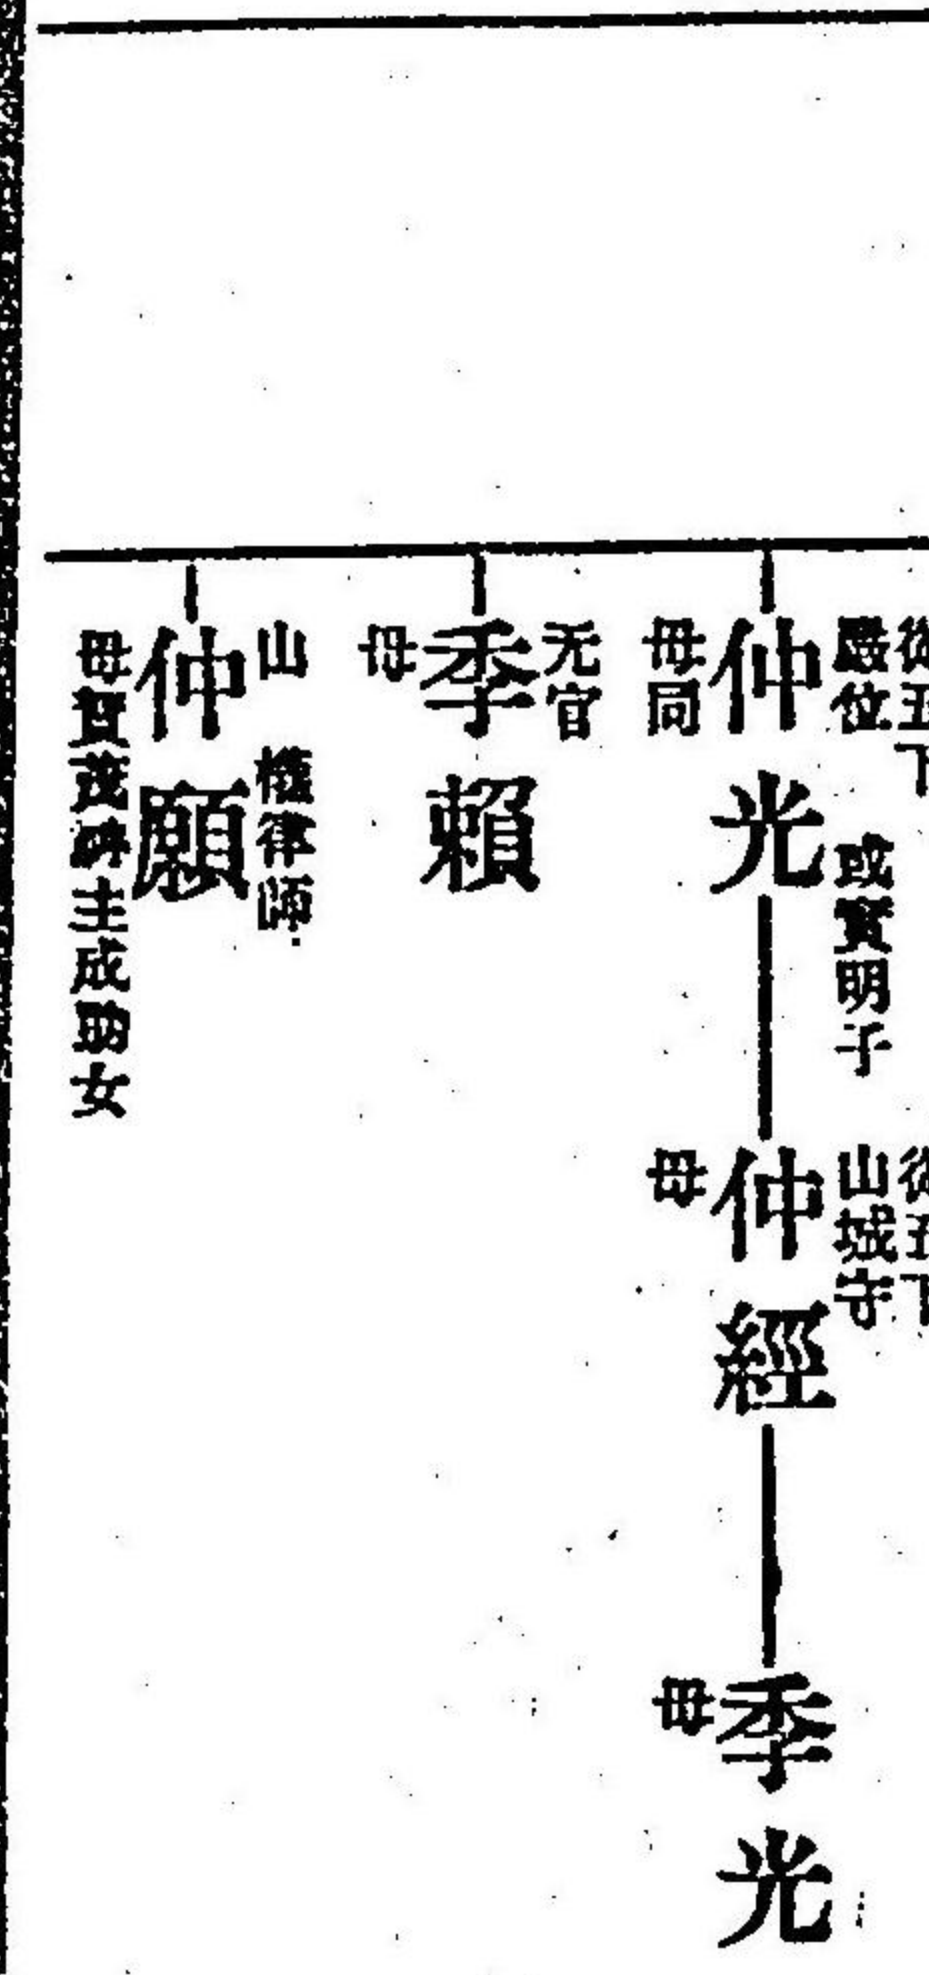 從五下
藏位 或實明子
仲光
母同
從五下
山城守
仲經
母
季光
母
无官
季賴
母
山 權律師
仲願
母賀茂神主成助女